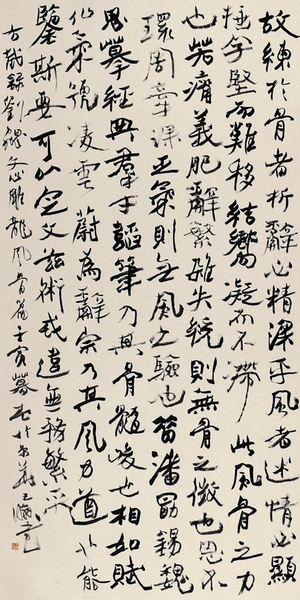 故練於骨者析辭必精深乎風者述情必顯
捶字堅而難移結響凝而不滯此風骨之力
也若瘠義肥辭繁雜失統則無骨之徵也思不
環周牽課乏氣則無風之驗也昔潘勖錫魏
思摹經典羣才韜筆乃其骨髓峻也相如賦
仙氣號凌雲蔚為辭宗乃其風力遒也能
鑒斯要可以定文茲術或違無務繁采
錄劉勰文心雕龍風骨篇